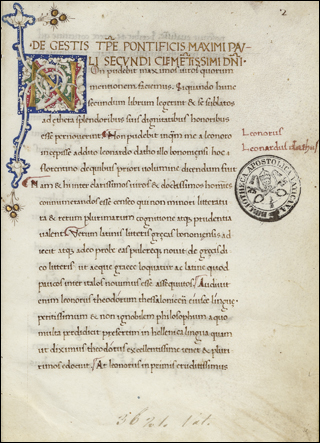 2
DE GESTIS TPE PONTIFICIS MAXIMI PAV
LI SECVNDI CLEMETISSIMI DNI
Non pudebit maximos uiros quorum
mentionem facimus. Si quando hunc
secundum librum legerint & se sublatos
ad ethera splendoribus suis dignitatibus honoribus
esse pernouerint. Non pudebit inquam me a leonoro
incepisse addito leonardo dathillo bononiensi hoc a
florentino de quibus priori uolumine dicendum fuit
Nam & hi uiri clarissimi uiros & doctissimos homines
commemorandos esse censeo qui non minori litteratu
ra & rerum plurimarum cognitione atque prudentia
ualent. Verum latinis greças bononiensis ad
iecit atque adeo probe eas percepit nouit de greçis di
co litteris ut aeque graece loquatur ac latine quod
pauces inter italos nouimus esse assequutos. Audiuit
enim leonorus theodorum thessalonicem eiusce lingue
peritissimum & non ignobilem philosophum a quo
multa perdidicit presertim in hellenica lingua quam
ut diximus theodotus excellentissime tenet & pluri
mos edocuit. At leonorus in primis eruditissimus
Leonorus
Leonardus dathus
BIBLIOTHECA APOSTOLICA VATICANA